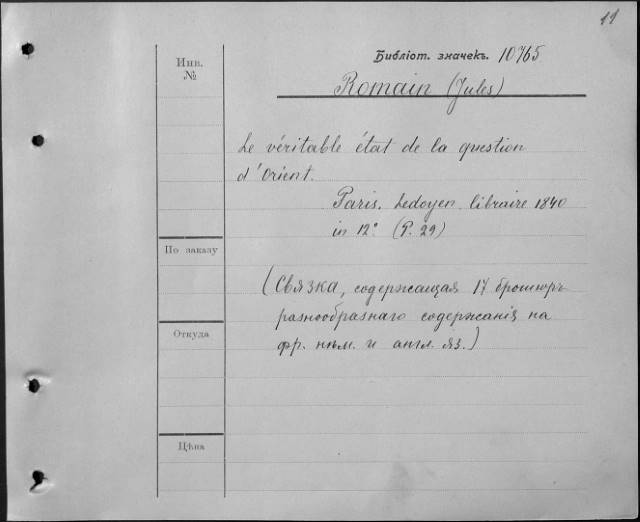 11
Библіот. значекъ. 10765
Romain (Jules)
Инв.
№
Le véritable état de la question
d'Orient.
Paris. Ledoyen libraire 1840
in 12° (P. 29)
По заказу
(Связка, содержащая 17 брошюръ
разнообразнаго содержанія на
фр. нѣм. и англ. яз.)
Откуда
Цѣна